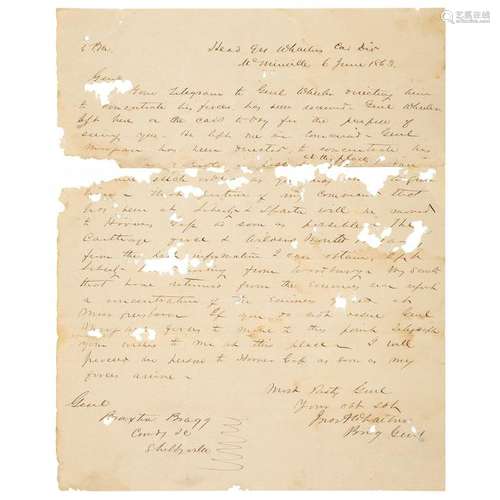 6 P.M. Head Qrs Wharton's Cav Div
McMinnville 6 June 1863.
Genl
Your telegram to Genl Wheeler directing him
to concentrate his forces has been received. Genl Wheeler
left here on the cars to-day for the purpose of
seeing you. He left me in command. Genl
Morgan has been directed to concentrate his
at this place
orders as you
here. The portion of my command that
has been at Liberty & Sparta will be moved
to Hoovers Gap as soon as possible. The
Carthage force &
from the best information I can obtain, left
Liberty moving from Woodbury. My scouts
that have returned from the
a concentration of the enemies at
Murfreesboro. If you do not desire Genl
Morgan's forces to move to this point telegraph
your wishes to me at this place. I will
proceed in person to Hoovers Gap as soon as my
forces arrive.
Most Resty Genl
Your obt svt
Jno A Wharton
Brig Genl
Genl
Braxton Bragg
Comdg &c
Shelbyville